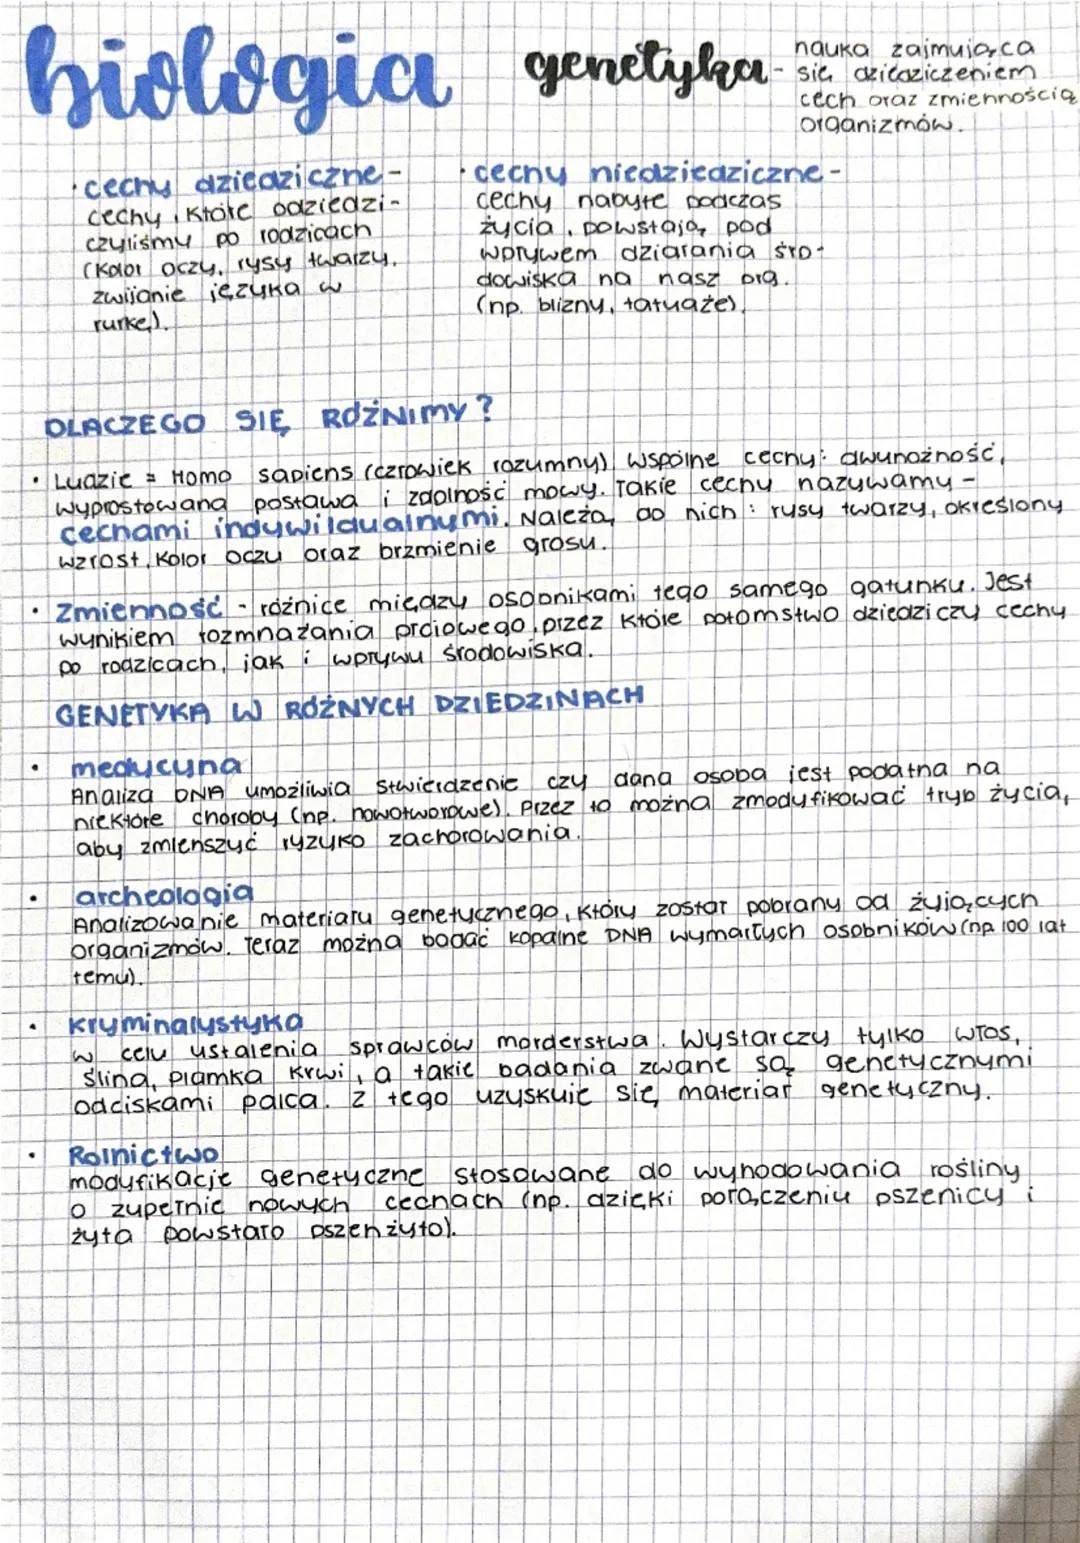 biologia
genetyka - nauka zajmująca
się dziedziczeniem
cech oraz zmiennością
organizmów.
· cechy dziedziczne -
cechy, które odziedzi-
czyliśmy po rodzicach
(kolor oczy, rysy twarzy,
zwijanie języka w
rurkę).
· cechy niedziedziczne -
cechy nabyte podczas
życia, powstają pod
wpływem działania śro-
dowiska na nasz org.
(np. blizny, tatuaże).
DLACZEGO SIĘ RÓŻNIMY?
· Ludzie = Homo sapiens (człowiek rozumny) Wspólne cechy: dwunożność,
wyprostowana postawa i zdolność mowy. Takie cechy nazywamy -
cechami indywildualnymi. Należą do nich: rysy twarzy, określony
wzrost, kolor oczu oraz brzmienie głosu.
· Zmienność - różnice między osobnikami tego samego gatunku. Jest
wynikiem rozmnażania płciowego, przez które potomstwo dziedziczy cechy
po rodzicach, jak i wpływu środowiska.
GENETYKA W RÓŻNYCH DZIEDZINACH
· medycyna
Analiza DNA umożliwia stwierdzenie czy dana osoba jest podatna na
niektóre choroby (np. nowotworowe). Przez to można zmodyfikować tryb życia,
aby zmienszyć ryzyko zachorowania.
· archeologia
Analizowanie materiału genetycznego, który został pobrany od żyjących
organizmów. Teraz można badać kopalne DNA wymarłych osobników (np 100 lat
temu).
· kryminalystyka
w celu ustalenia sprawców morderstwa. Wystarczy tylko włos,
ślina, plamka krwi, a takie badania zwane są genetycznymi
odciskami palca. Z tego uzyskuje się materiał genetyczny.
· Rolnictwo
modyfikacje genetyczne stosowane do wyhodowania rośliny
o zupełnie nowych cechach (np. dzięki połączeniu pszenicy i
żyta powstało pszenżyto).